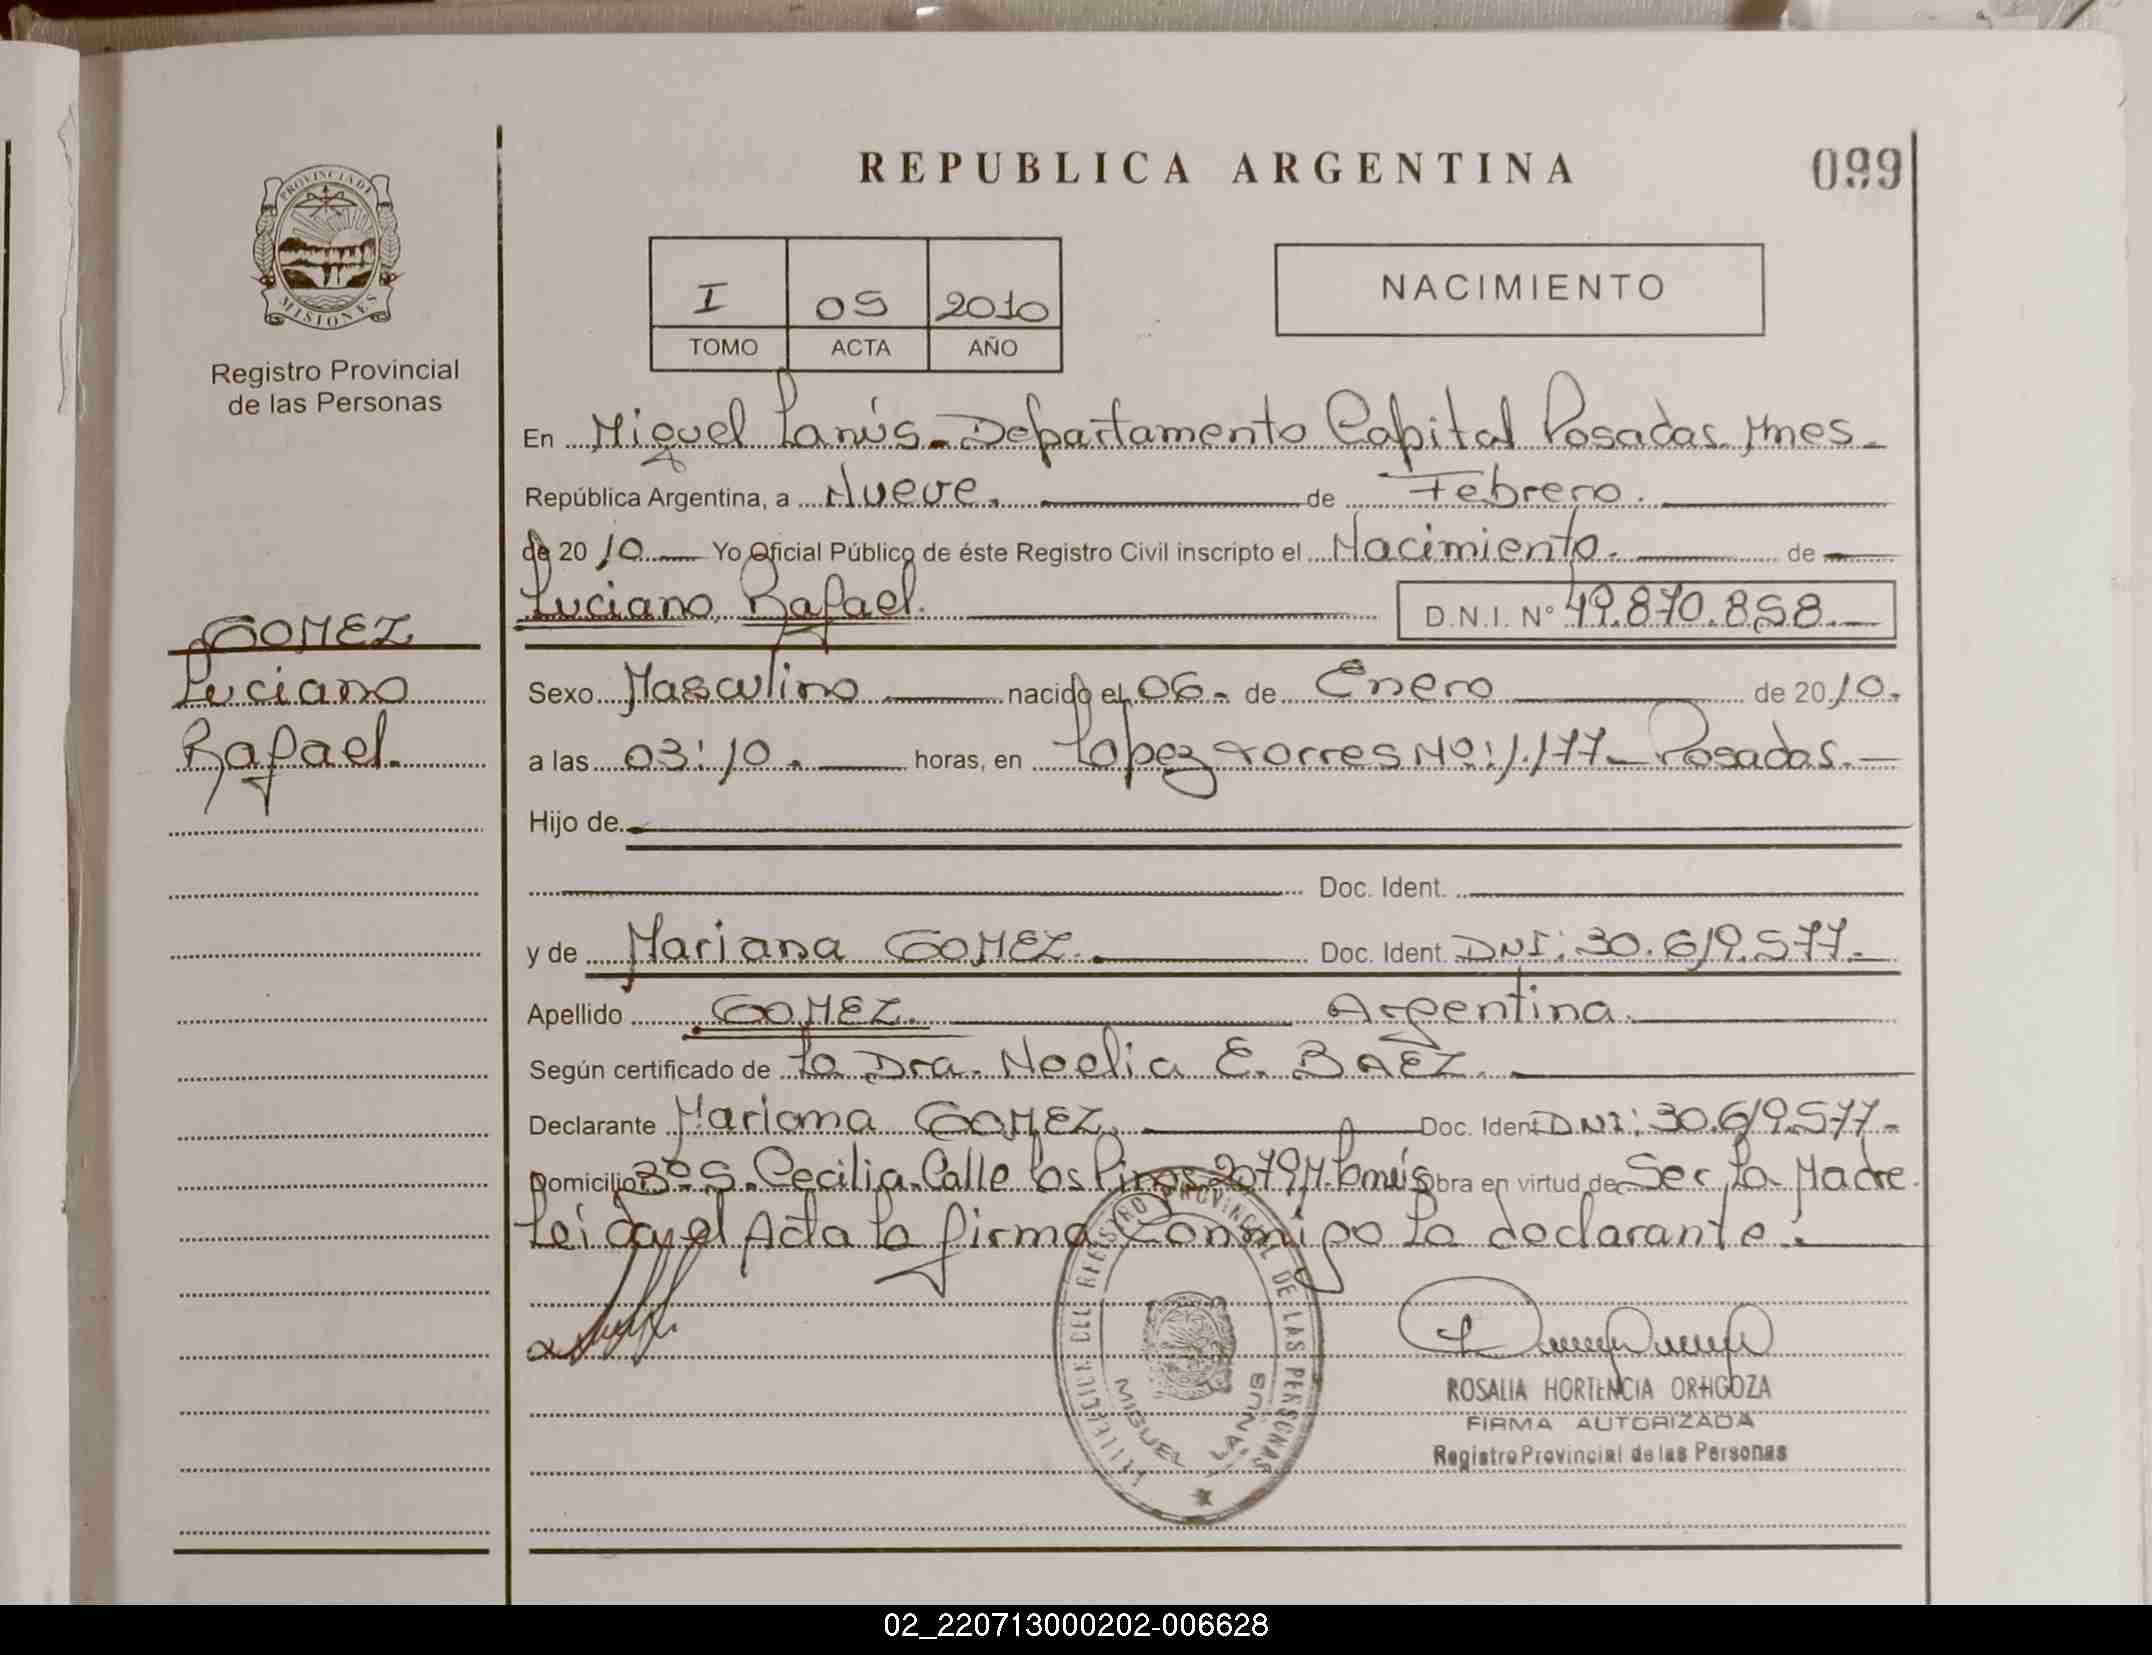 REPUBLICA ARGENTINA
099
PROVINCIA DE
MISIONES
Registro Provincial
de las Personas
I 09 2010
TOMO ACTA AÑO
NACIMIENTO
En Miguel Lanús - Departamento Capital Posadas Mnes.
República Argentina, a Nueve. de Febrero.
de 2010 Yo Oficial Público de éste Registro Civil inscripto el Nacimiento. de
Luciano Rafael. D.N.I. N° 49.870.858.
GOMEZ
Luciano
Rafael.
Sexo Masculino nacido el 06. de Enero de 2010.
a las 03:10. horas, en Lopez torres Nº: 1.177 - Posadas.
Hijo de
Doc. Ident.
y de Mariana GOMEZ. Doc. Ident. DNI: 30.619.577.
Apellido GOMEZ. Argentina.
Según certificado de la Dra. Noelia E. BAEZ.
Declarante Mariana GOMEZ. Doc. Ident. DNI: 30.619.577.
Domicilio Bº S. Cecilia. Calle los Pinos 2079 M. Lanús Obra en virtud de Ser la Madre.
Leída el Acta la firma Conmigo la declarante.
REGISTRO PROVINCIAL DE LAS PERSONAS
MIGUEL LANUS
ROSALIA HORTENCIA ORTIGOZA
FIRMA AUTORIZADA
Registro Provincial de las Personas
02_220713000202-006628